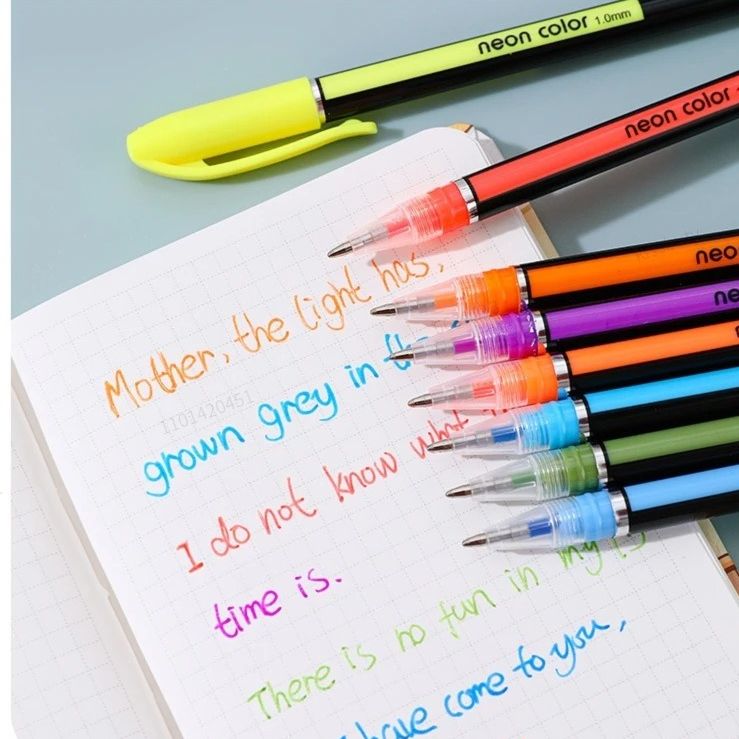 neon color 1.0mm
neon color
neo
ne
Mother, the light has,
grown grey in the
I do not know what
time is.
There is no fun in my
have come to you,
1101420451